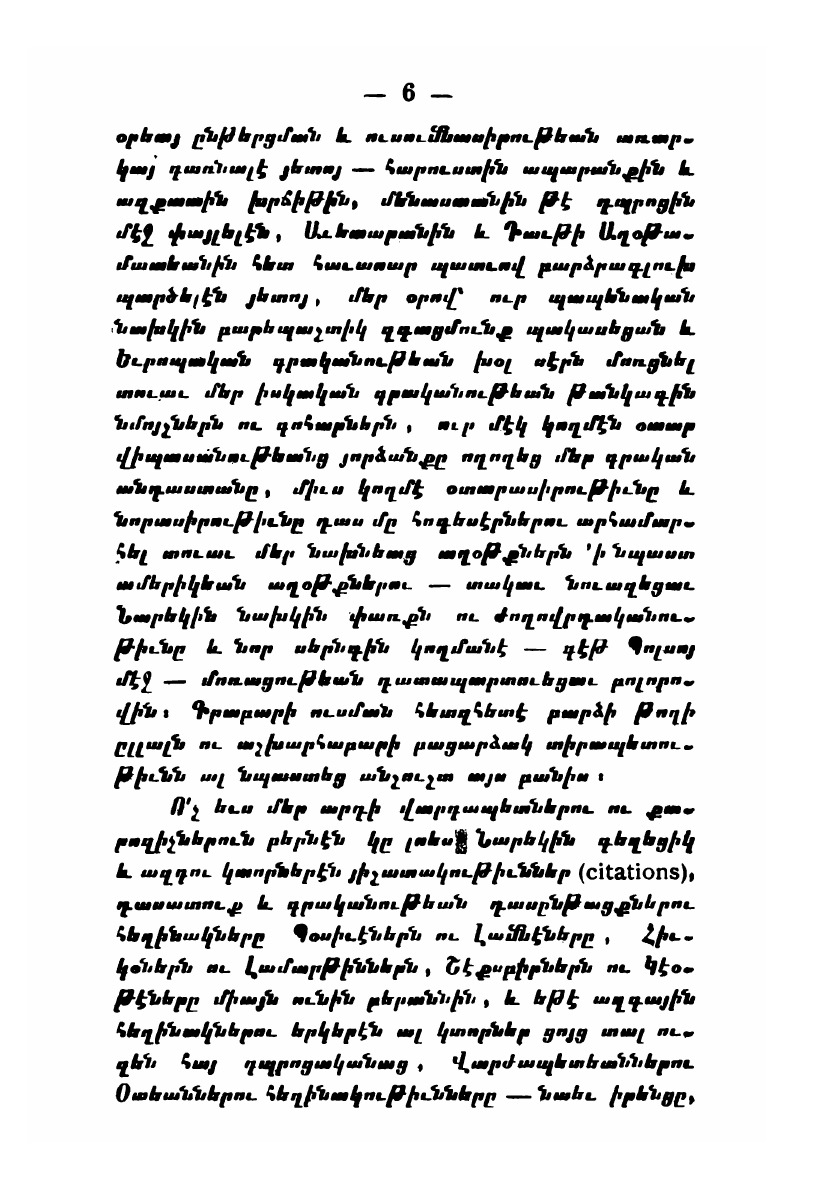 — 6 —
օրեայ ընթերցման և ուսումնասիրութեան առար-
կայ դառնալէ յետոյ — հարուստին ապարանքին և
աղքատին խրճիթին, մենաստանին թէ դպրոցին
մէջ փայլելէն, Աւետարանին և Դաւթի Աղօթա-
մատեանին հետ հաւասար պատուով բարձրագլուխ
պարծելէն յետոյ, մեր օրով՝ ուր պապենական
նախկին բարեպաշտիկ զգացմունք պակասեցան և
Եւրոպական գրականութեան խօլ սէրն մոռցնել
տուաւ մեր իսկական գրականութեան թանկագին
նմոյշներն ու գոհարներն, ուր մէկ կողմէն օտար
վիպասանութեանց յորձանքը ողողեց մեր գրական
անդաստանը, միւս կողմէ օտարասիրութիւնը և
նորասիրութիւնը դաս մը հոգեսէրներու արհամար-
հել տուաւ մեր նախնեաց աղօթքներն ՚ի նպաստ
ամերիկեան աղօթքներու — տակաւ նուազեցաւ
Նարեկին նախկին փառքն ու ժողովրդականու-
թիւնը և նոր սերնդին կողմանէ — գէթ Պոլսոյ
մէջ — մոռացութեան դատապարտուեցաւ բոլորո-
վին։ Գրաբարի ուսման հետզհետէ բարձի թողի
ըլլալն ու աշխարհաբարի բացարձակ տիրապետու-
թիւնն ալ նպաստեց անշուշտ այս բանիս։
Ո՛չ եւս մեր արդի վարդապետներու ու քա-
րոզիչներուն բերնէն կը լսես Նարեկին գեղեցիկ
և ազդու կտորներէն յիշատակութիւններ (citations),
դասատուք և գրականութեան դասընթացքներու
հեղինակները Պօսիւէներն ու Լամնէները, Հիւ-
կօներն ու Լամարթիններն, Շէքսբիրներն ու Կէօ-
թէները միայն ունին բերաննին, և եթէ ազգային
հեղինակներու երկերէն ալ կտորներ ցոյց տալ ու-
զեն հայ դպրոցականաց, Վարժապետեաններու
Օտեաններու հեղինակութիւնները — նաեւ իրենցը,